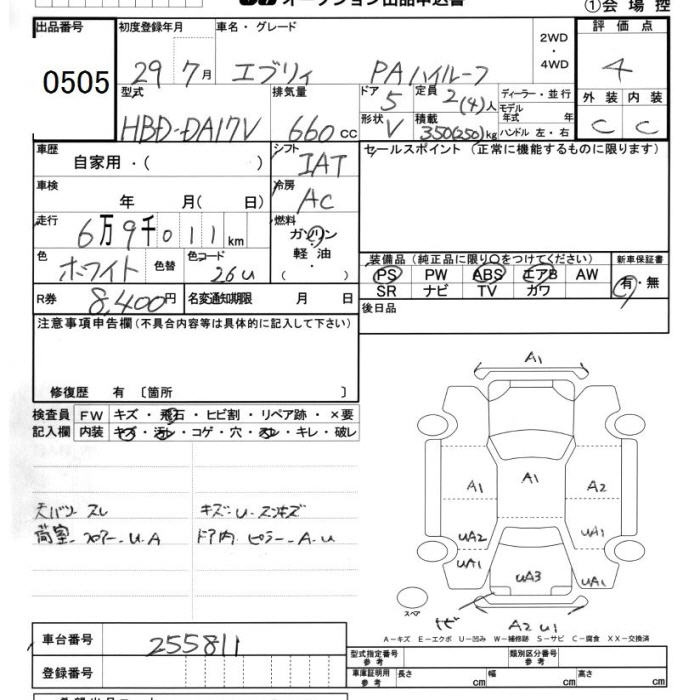 オークション出品申込書
①会場控
出品番号 初度登録年月 車名・グレード 2WD・4WD 評価点
0505 29年7月 エブリィ PAハイルーフ 4
型式 排気量 ドア 5 定員 2(4)人 ディーラー・並行 外装 内装
HBD-DA17V 660cc 形状 V 積載 350(250)kg モデル年式 年 ハンドル 左・右 C C
車歴 自家用・( ) シフト IAT セールスポイント(正常に機能するものに限ります)
車検 年 月( 日) 冷房 AC
走行 6万9千011km 燃料 ガソリン・軽油
( ・ )
色 ホワイト 色替 色コード 26U 装備品(純正品に限り○をつけてください) 新車保証書
PS PW ABS エアB AW 有・無
SR ナビ TV カワ
R券 8,400円 名変通知期限 月 日 後日品
注意事項申告欄(不具合内容等は具体的に記入して下さい)
修復歴 有 〔箇所 〕
検査員記入欄 FW キズ・飛石・ヒビ割・リペア跡・×要
内装 キズ・汚れ・コゲ・穴・スレ・キレ・破レ
天バリ スレ キズ・U・
荷室・フロアー・U.A ドア内 ピラー・A.U
A1
A1 A1 A2
UA2 UA1
UA1 UA3 UA1
スペア トビ A2 U1
A-キズ E-エクボ U-凹み W-補修跡 S-サビ C-腐食 XX-交換済
車台番号 255811
型式指定番号 参考 類別区分番号 参考
登録番号
車庫証明用 参考 長さ cm 幅 cm 高さ cm